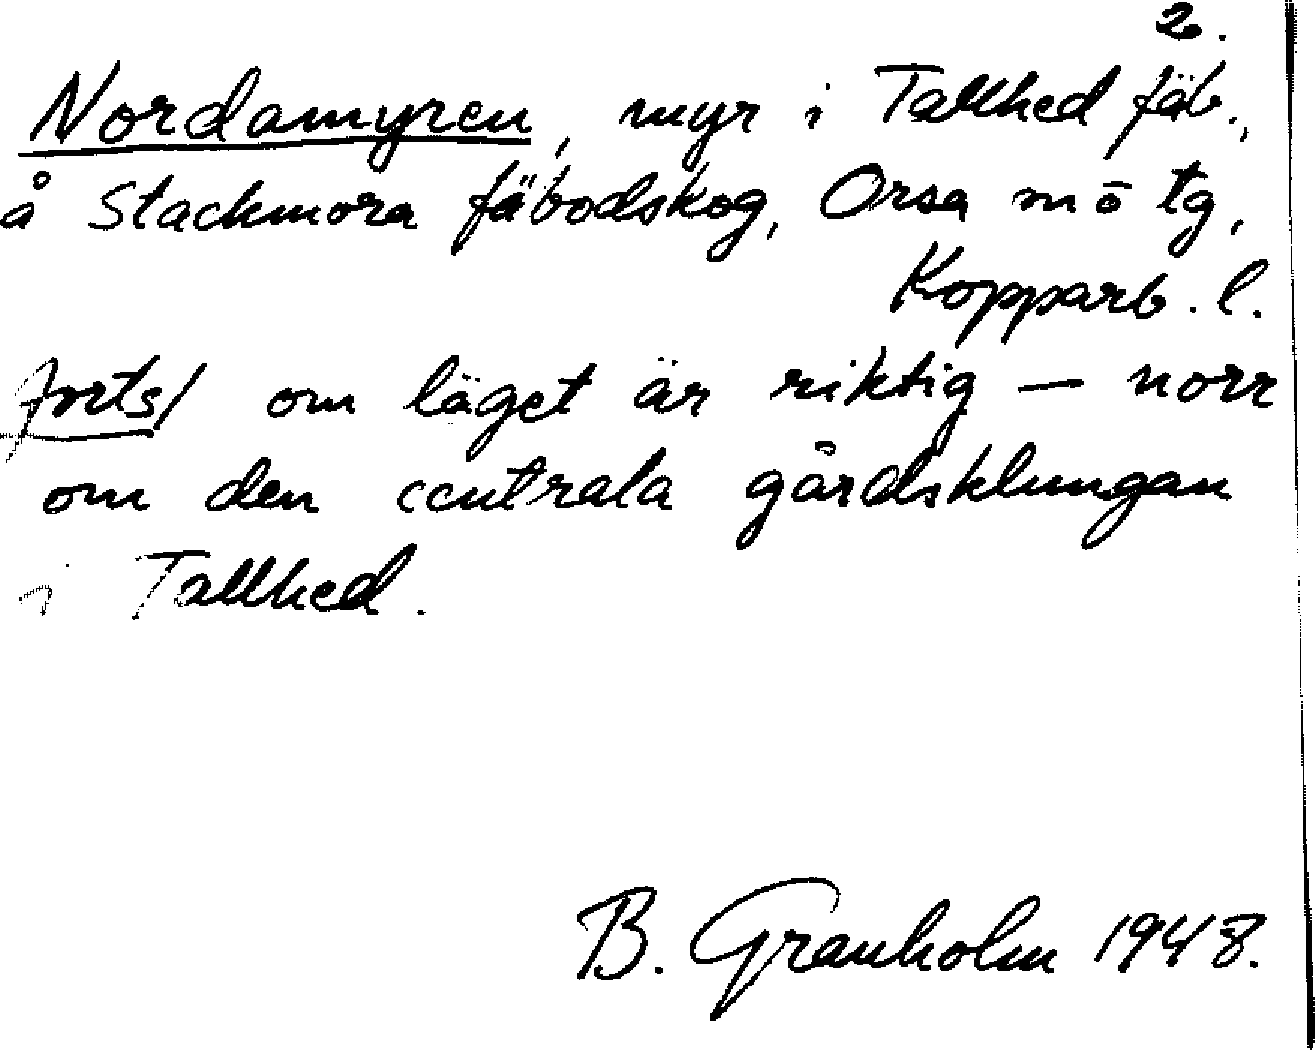 2.
Nordamyren, myr i Tallhed fäb.,
å Stackmora fäbodskog, Orsa m ō tg,
Kopparb. l.
forts/ om läget är riktig — norr
om den centrala gårdsklungan
i Tallhed.
B. Granholm 1948.